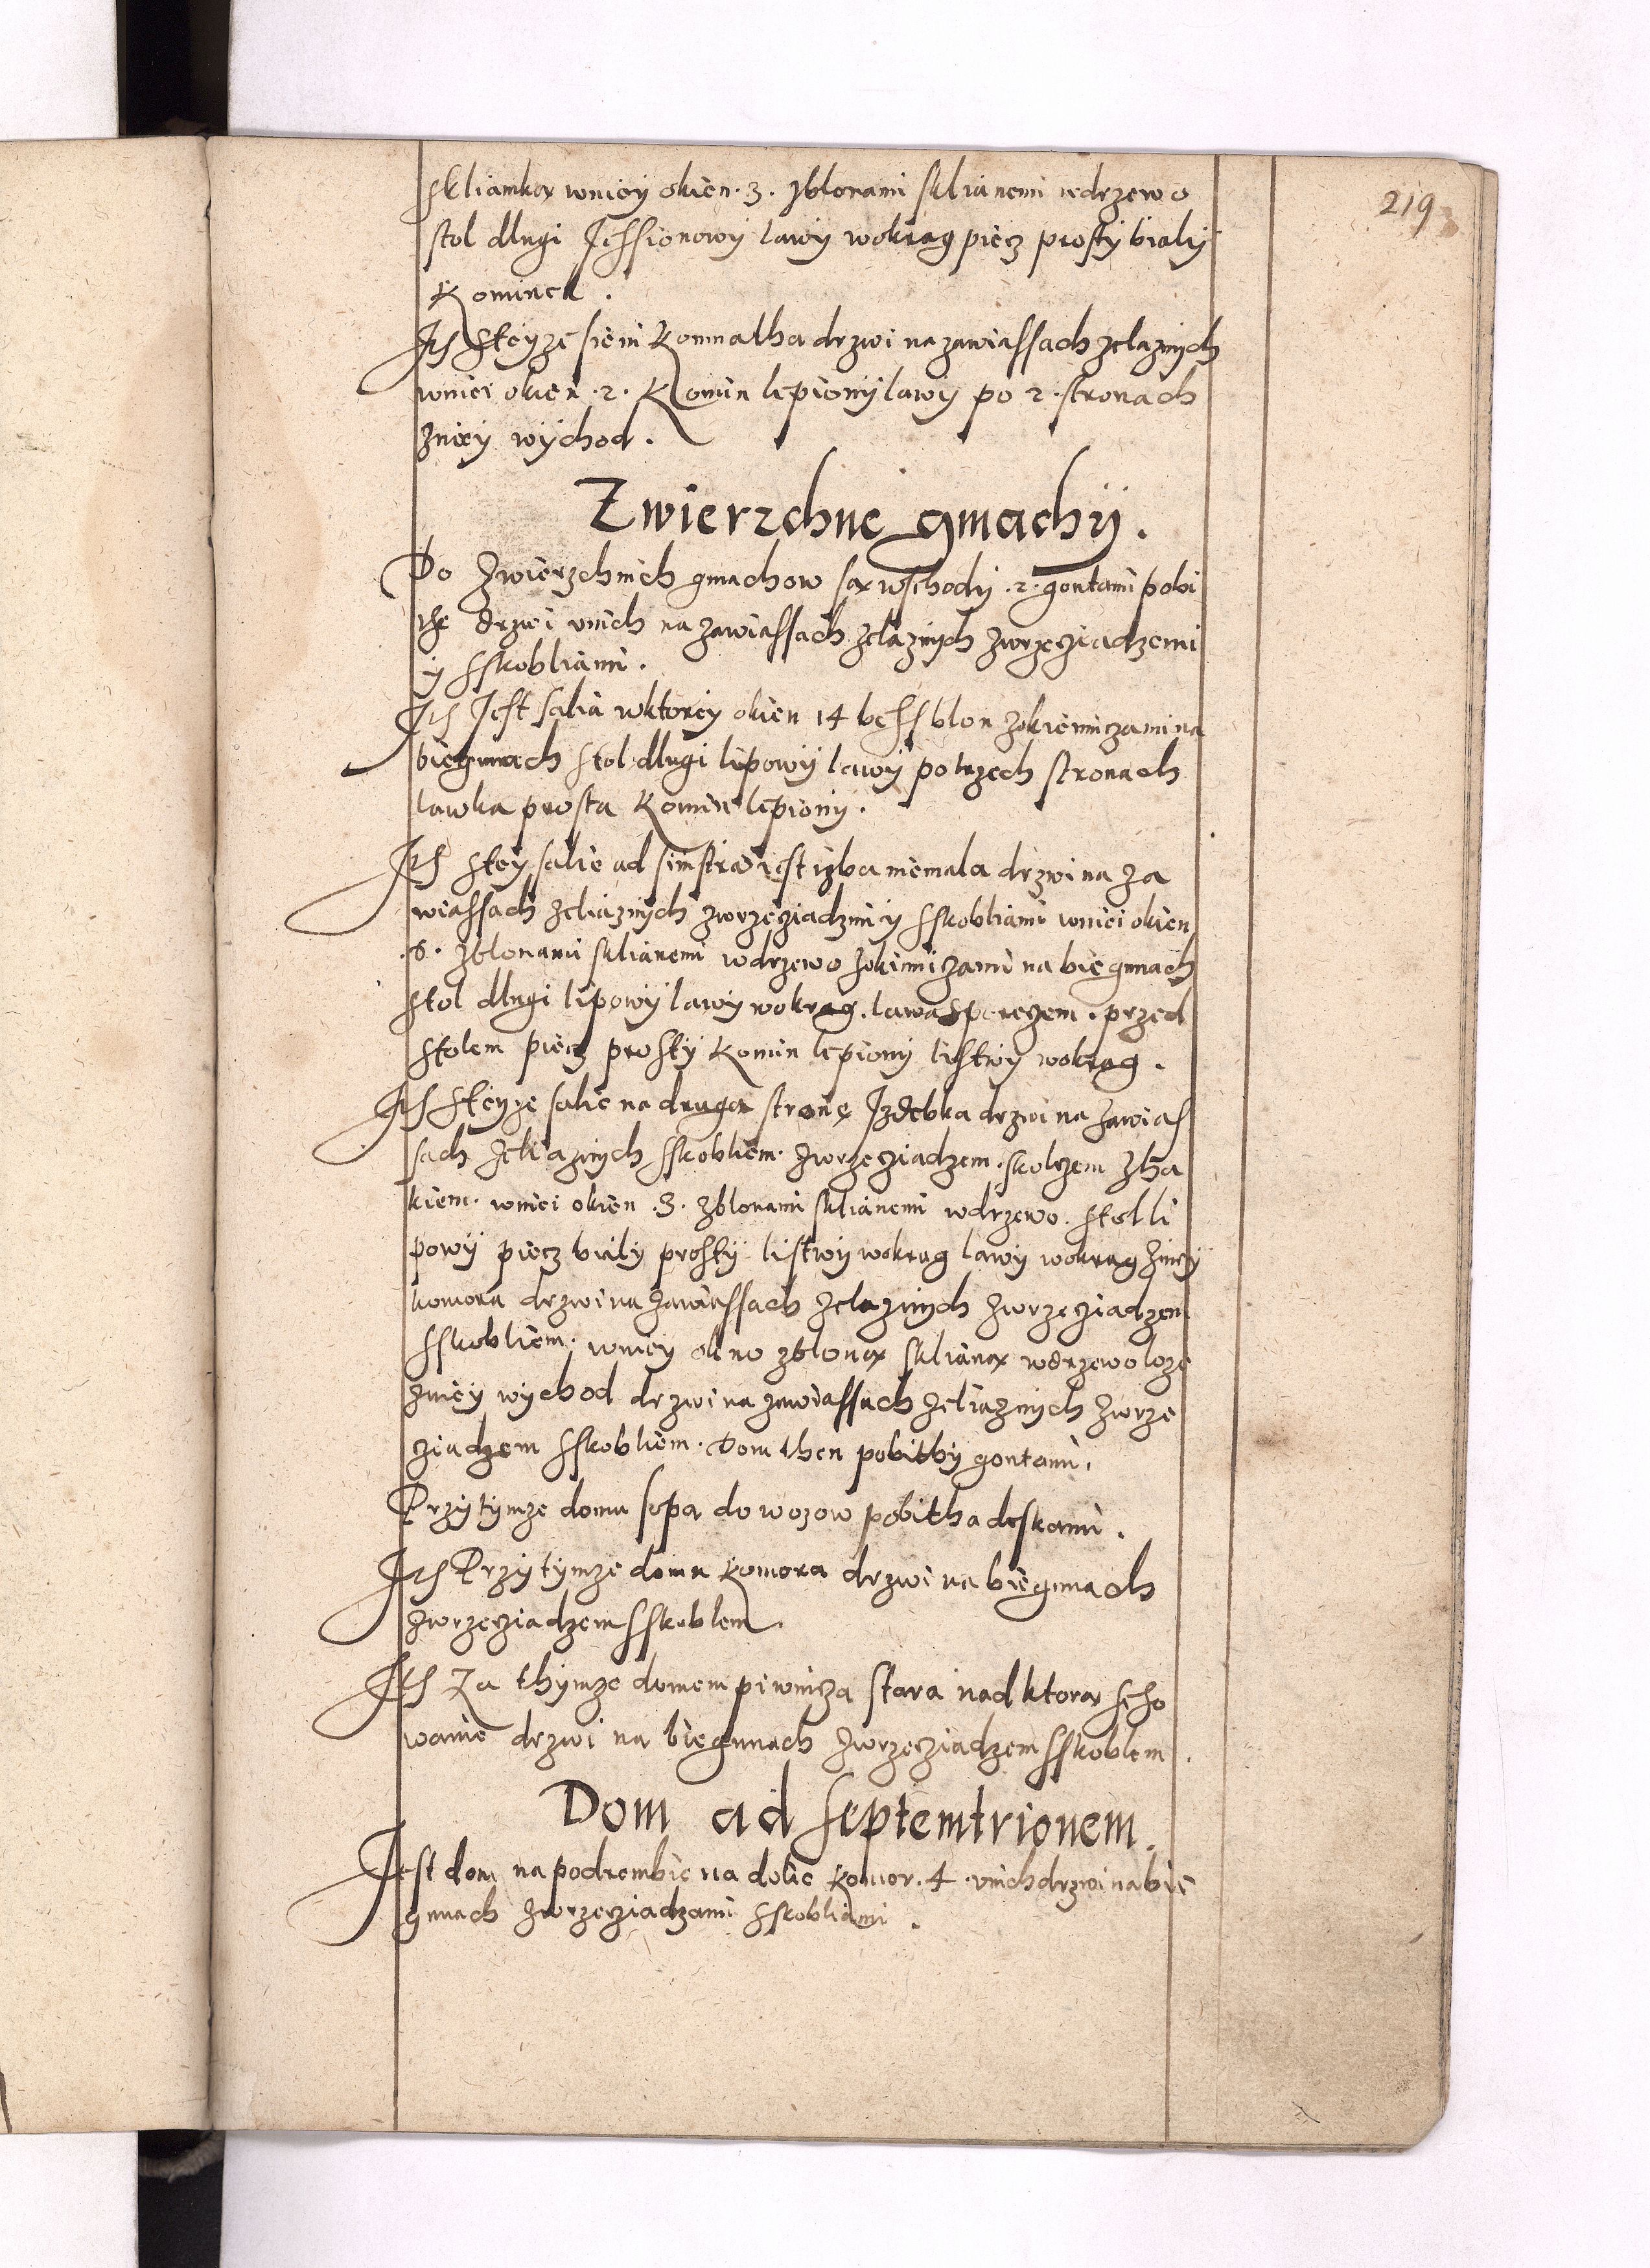 219
skliamką wniey okien .3. zblonami sklianemi wdrzewo
stol dlugi Jessionowy lawy wokrąg piecz prosty bialy
Kominek.
Its steyze sieni Komnatha drzwi na zawiassach zelaznych
wniei okien .2. Komin lepiony lawy po 2. stronach
zniey wychod.
Zwierzchne gmachy.
Do zwierzchnich gmachow są wschody .2. gontami pobi
the drzwi unich na zawiassach zelaznych zwrzecziadzemi
y sskobliami.
Its Jest salia wktorey okien 14 bess blon zokieniczami na
biegunach stol dlugi lipowy lawy po trzech stronach
lawka prosta Komin lepiony.
Its stey salie ad sinistra iest izba niemala drzwi na za
wiassach zeliaznych zwrzecziadzmi y sskobliami wniei okien
.6. zblonami sklianemi wdrzewo zokiniczami na biegunach
stol dlugi lipowy lawy wokrąg. lawa sporęczem. przed
stolem piecz prosty Komin lepiony listwy wokrąg.
Its steyze salie na drugą stronę Jzdebka drzwi na zawias
sach zeliaznych sskobliem. zwrzecziadzem. skolczem zha
kiem. wniei okien .3. zblonami sklianemi wdrzewo. stol li
powy piecz bialy prosty listwy wokrąg lawy wokrąg zniey
komora drzwi na zawiassach zelaznych zwrzecziadzem
sskobliem. wniey okno zbloną sklianą wdrzewo loze
zniey wychod drzwi na zawiassach zeliaznych zwrze
cziadzem sskobliem. Dom then pobithy gontami.
Przy tymze domu sopa do wozow pobitha deskami.
Its Przy tymze domu Komora drzwi na biegunach
zwrzecziadzem sskoblem.
Its Za thymze domem piwnicza stara nad ktorą scho
wanie drzwi na biegunach zwrzecziadzem sskoblem.
Dom ad septemtrionem.
Jest dom na podrembie na dolie Komor .4. unich drzwi na bie
gunach zwrzecziadzami sskobliami.